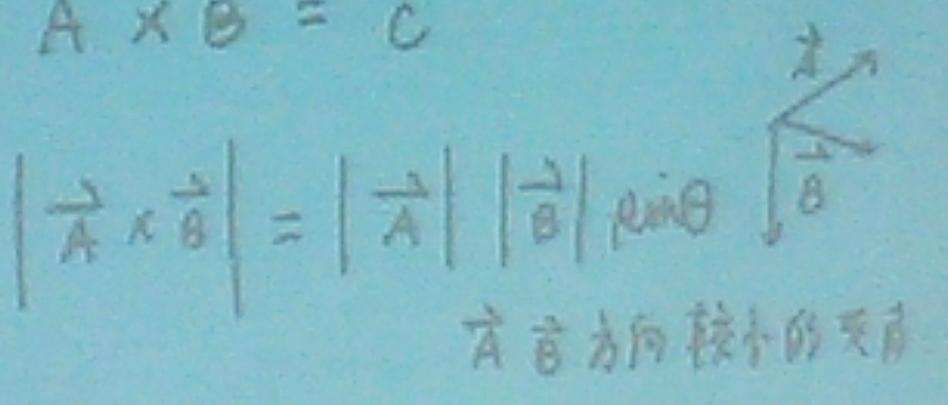 A × B = C
|A⃗ × B⃗| = |A⃗| |B⃗| sinθ
A⃗
B⃗
A⃗ B⃗ 方向較小的夾角